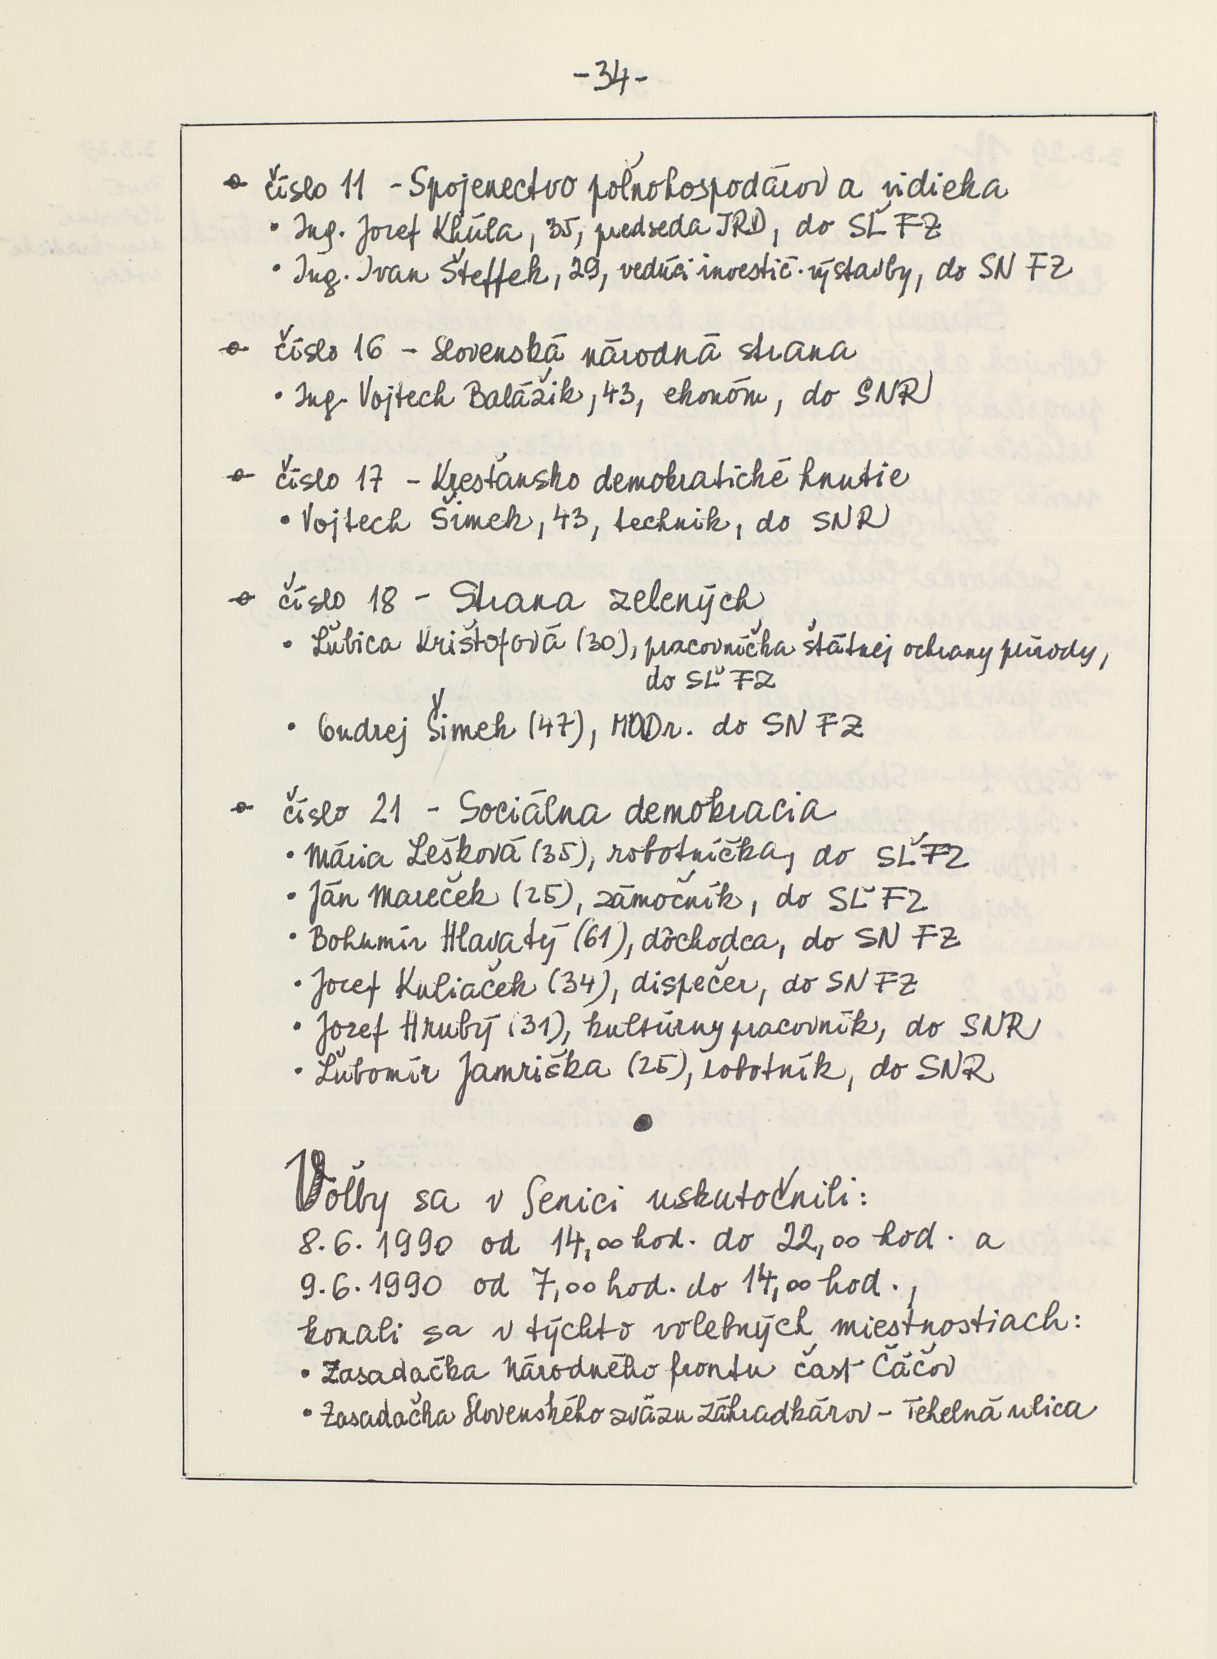 -34-
číslo 11 - Spojenectvo poľnohospodárov a vidieka
• Ing. Jozef Khúla, 35, predseda JRD, do SĽ FZ
• Ing. Ivan Šteffek, 29, vedúci investič. výstavby, do SN FZ
číslo 16 - Slovenská národná strana
• Ing. Vojtech Balážik, 43, ekonóm, do SNR
číslo 17 - Kresťansko demokratické hnutie
• Vojtech Šimek, 43, technik, do SNR
číslo 18 - Strana zelených
• Ľubica Krištofová (30), pracovníčka štátnej ochrany prírody,
do SĽ FZ
• Ondrej Šimek (47), MUDr. do SN FZ
číslo 21 - Sociálna demokracia
• Mária Lešková (35), robotníčka, do SĽ FZ
• Ján Mareček (25), zámočník, do SĽ FZ
• Bohumír Hlavatý (61), dôchodca, do SN FZ
• Jozef Kuliaček (34), dispečer, do SN FZ
• Jozef Hrubý (31), kultúrny pracovník, do SNR
• Ľubomír Jamriška (25), robotník, do SNR
Voľby sa v Senici uskutočnili:
8.6.1990 od 14,00 hod. do 22,00 hod. a
9.6.1990 od 7,00 hod. do 14,00 hod.,
konali sa v týchto volebných miestnostiach:
• Zasadačka Národného frontu časť Čáčov
• Zasadačka Slovenského zväzu záhradkárov - Tehelná ulica